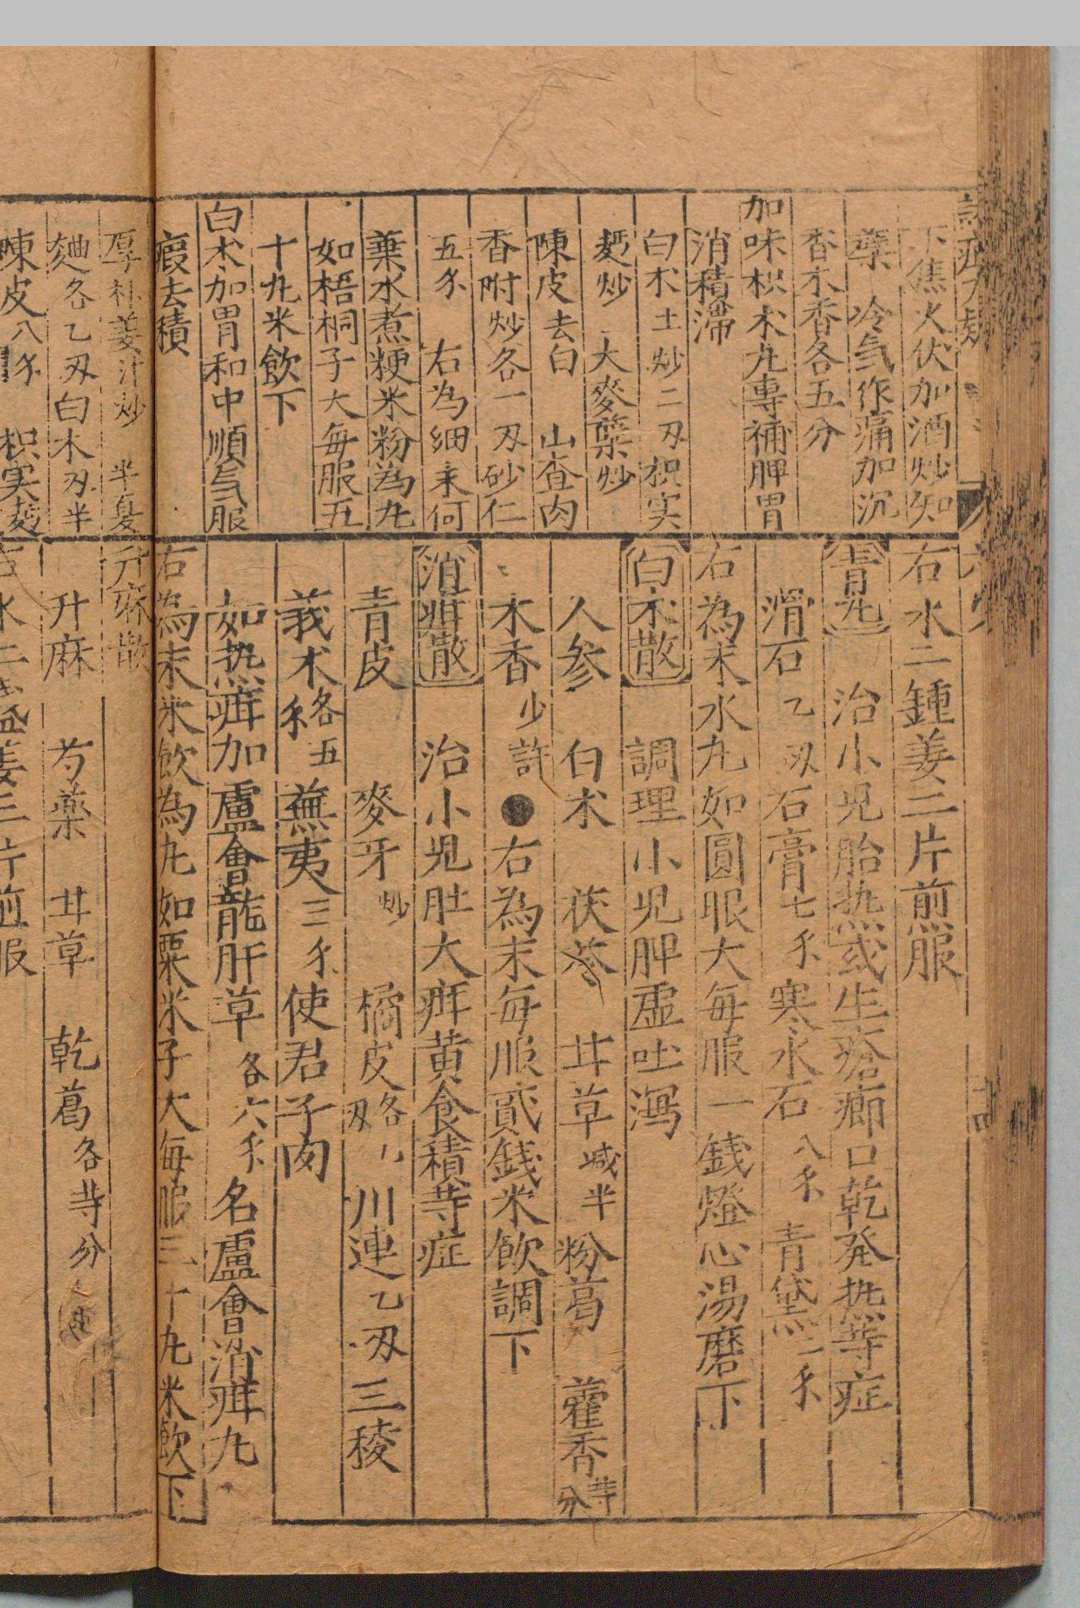 下焦火伏加酒炒知
蘗　冷気作痛加沉
香木香各五分
加味枳朮丸專補脾胃
消積滯
白朮土炒二刄枳实
麪炒　大麥蘗炒
陳皮去白　山查肉
香附炒各一刄砂仁
五𠆤　右為細末何
葉水煮粳米粉為丸
如梧桐子大每服五
十丸米飲下
白朮加胃和中順気服
瘕去積
厚朴姜汁炒　半夏
麯各乙刄白朮刄半
陳皮八𠆤　枳実
右水二鍾姜三片煎服
青丸　治小児胎热或生瘡癤口乾発热等症
滑石乙刄石膏七𠆤寒水石八𠆤青黛一𠆤
右為末水丸如圓眼大每服一錢燈心湯磨下
白朮散　調理小児脾虛吐瀉
人參　白朮　茯苓　甘草減半粉葛　藿香等分
木香少許●右為末每服貳錢米飲調下
消疳散　治小児肚大疳黄食積等症
青皮　麥牙炒　橘皮各八刄川連乙刄三稜
莪朮各五𠆤蕪夷三𠆤使君子肉
如热疳加盧會龍肝草各六𠆤名盧會消疳丸
右為末米飲為丸如粟米子大每服三十丸米飲下
升麻散
升麻　芍藥　甘草　乾葛各等分
右水二鍾姜三片煎服